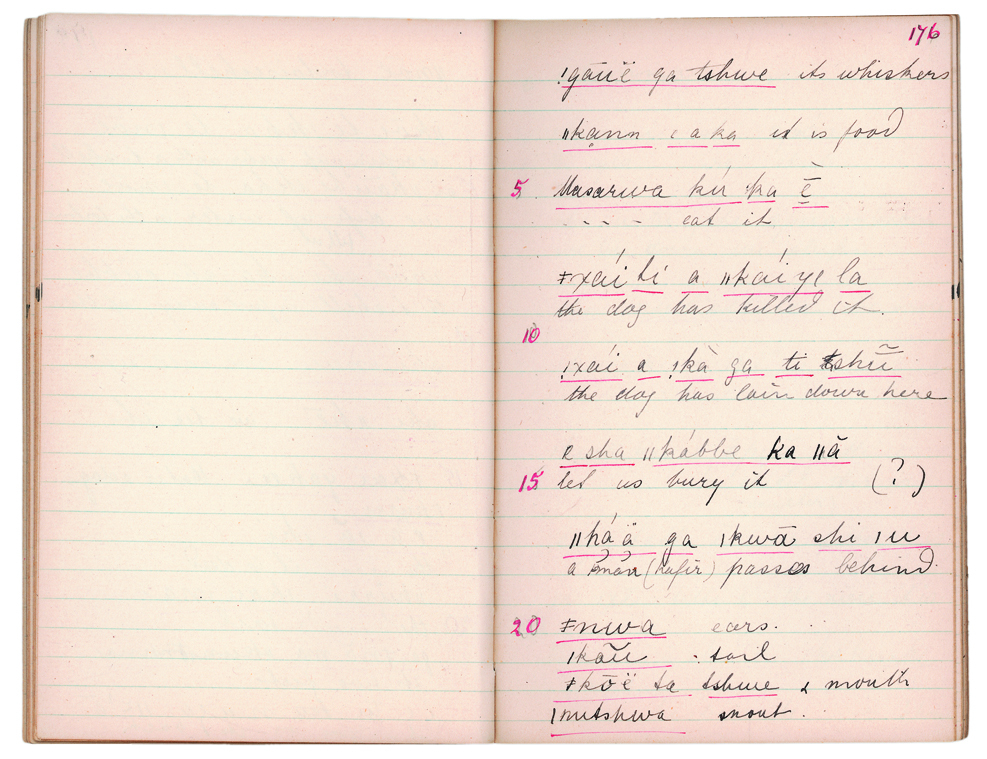 176
!gãũë ga tshwe its whiskers
ǁkạnn ǀ a ka it is food
5 Masarwa kú ka ē
- - - eat it
ǂxái tí a ǁkái ye la
the dog has killed it.
10
!xái a !kà ga ti tshũ
the dog has lain down here
e sha ǁkábbe ka ǁā
15 let us bury it (?)
ǁháä ga ǀkwā shi ǀu
a man (kafir) passes behind
20 ǂnwa ears.
ǀkãũ tail
ǂkōë ta tshwe mouth
ǀnutshwa snout.